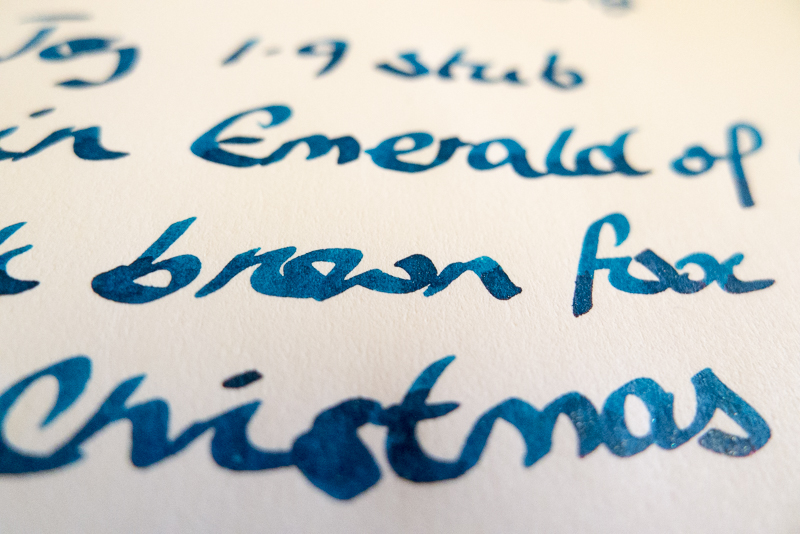 1.9 stub
in Emerald of
k brown fox
Christmas